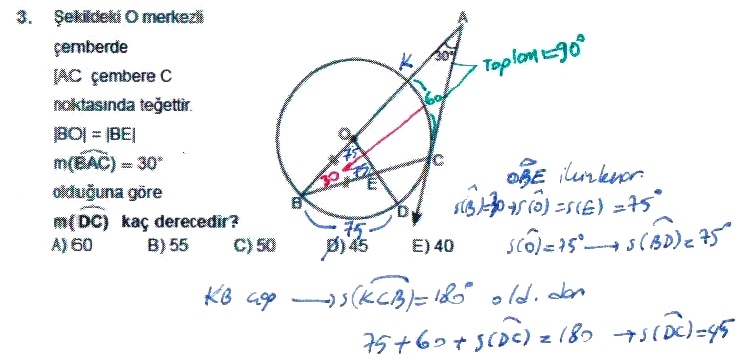 3. Şekildeki O merkezli
çemberde
[AC çembere C
noktasında teğettir.
|BO| = |BE|
m(BAC) = 30°
olduğuna göre
m(DC) kaç derecedir?
A) 60 B) 55 C) 50 D) 45 E) 40
A
30°
K
60
Toplam = 90°
O
75
30
75
E
C
B
D
75
OBE ikizkenar
s(B)=30 → s(O) = s(E) = 75°
s(O) = 75° → s(BD) = 75°
KB çap → s(KCB) = 180° old. dan
75 + 60 + s(DC) = 180 → s(DC) = 45